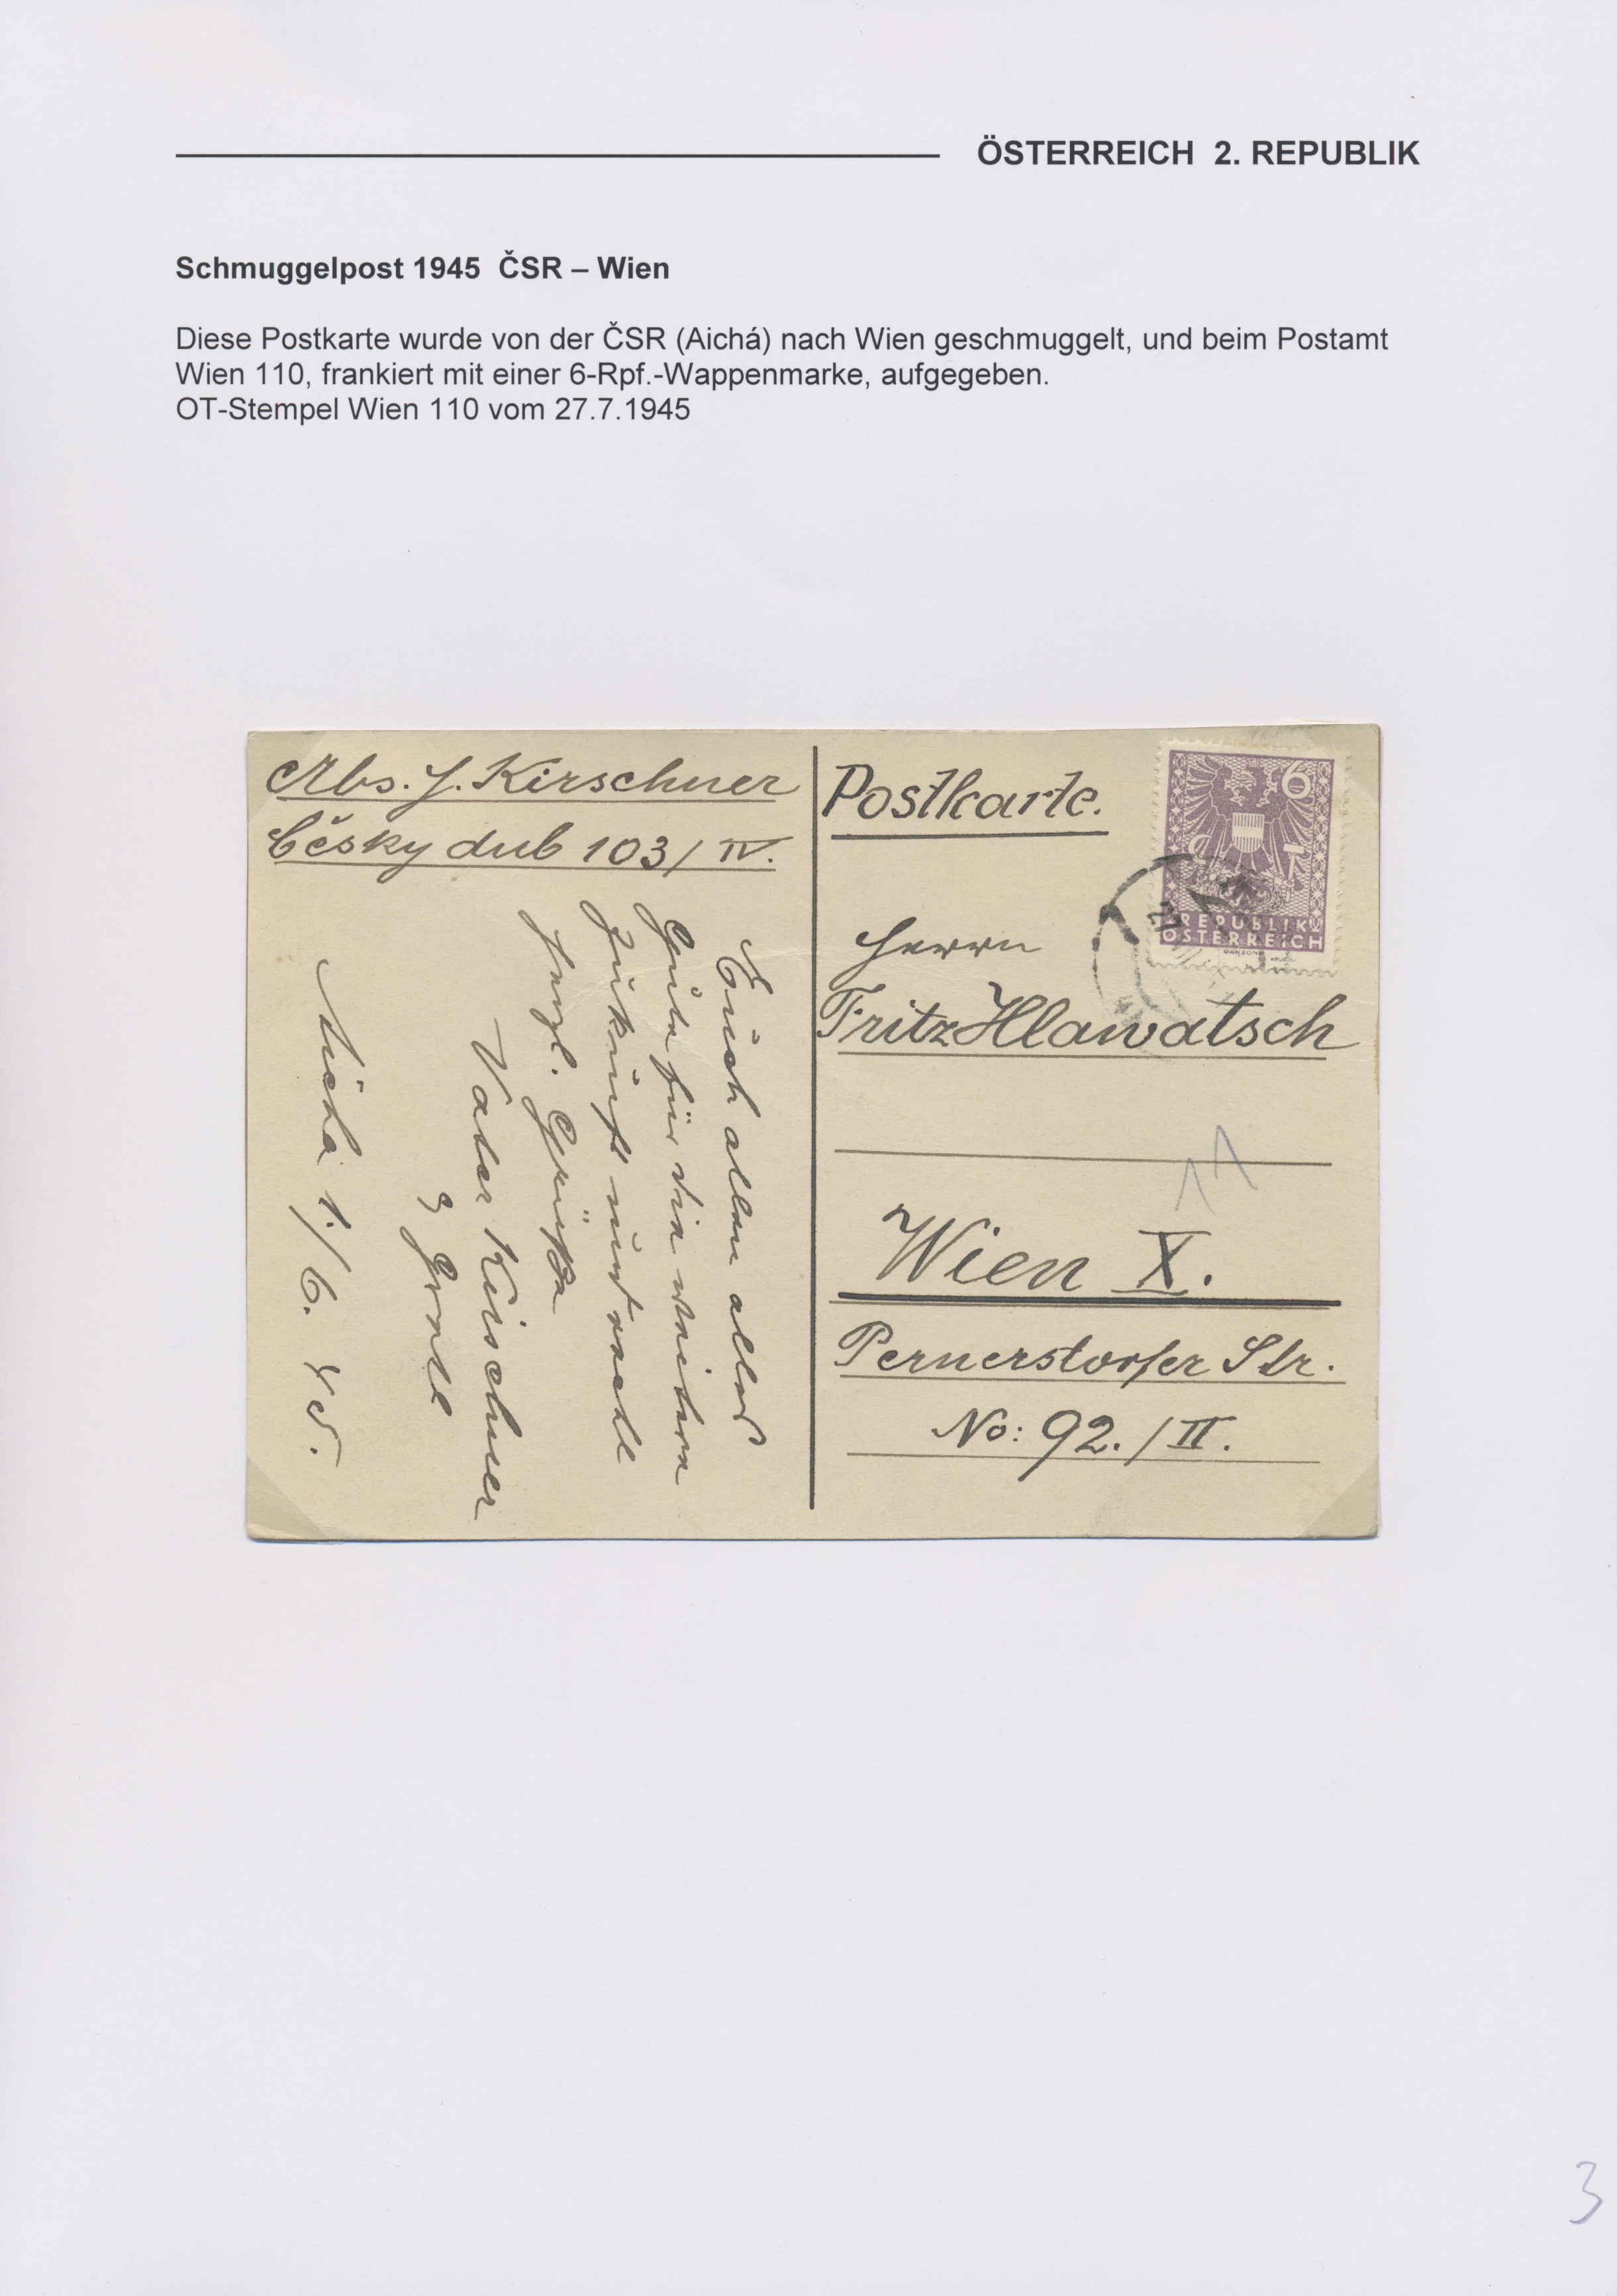 ÖSTERREICH 2. REPUBLIK
Schmuggelpost 1945 ČSR – Wien
Diese Postkarte wurde von der ČSR (Aichá) nach Wien geschmuggelt, und beim Postamt
Wien 110, frankiert mit einer 6-Rpf.-Wappenmarke, aufgegeben.
OT-Stempel Wien 110 vom 27.7.1945
Abs. J. Kirschner
Česky dub 103/IV.
Euch allen alles
Gute für die weitere
Zukunft und recht
herzl. Grüße
Vater Kirschner
Aicha 1./6. 45.
Postkarte.
6
REPUBLIK
ÖSTERREICH
Herrn
Fritz Hlawatsch
11
Wien X.
Pernerstorfer Str.
No: 92./II.
3